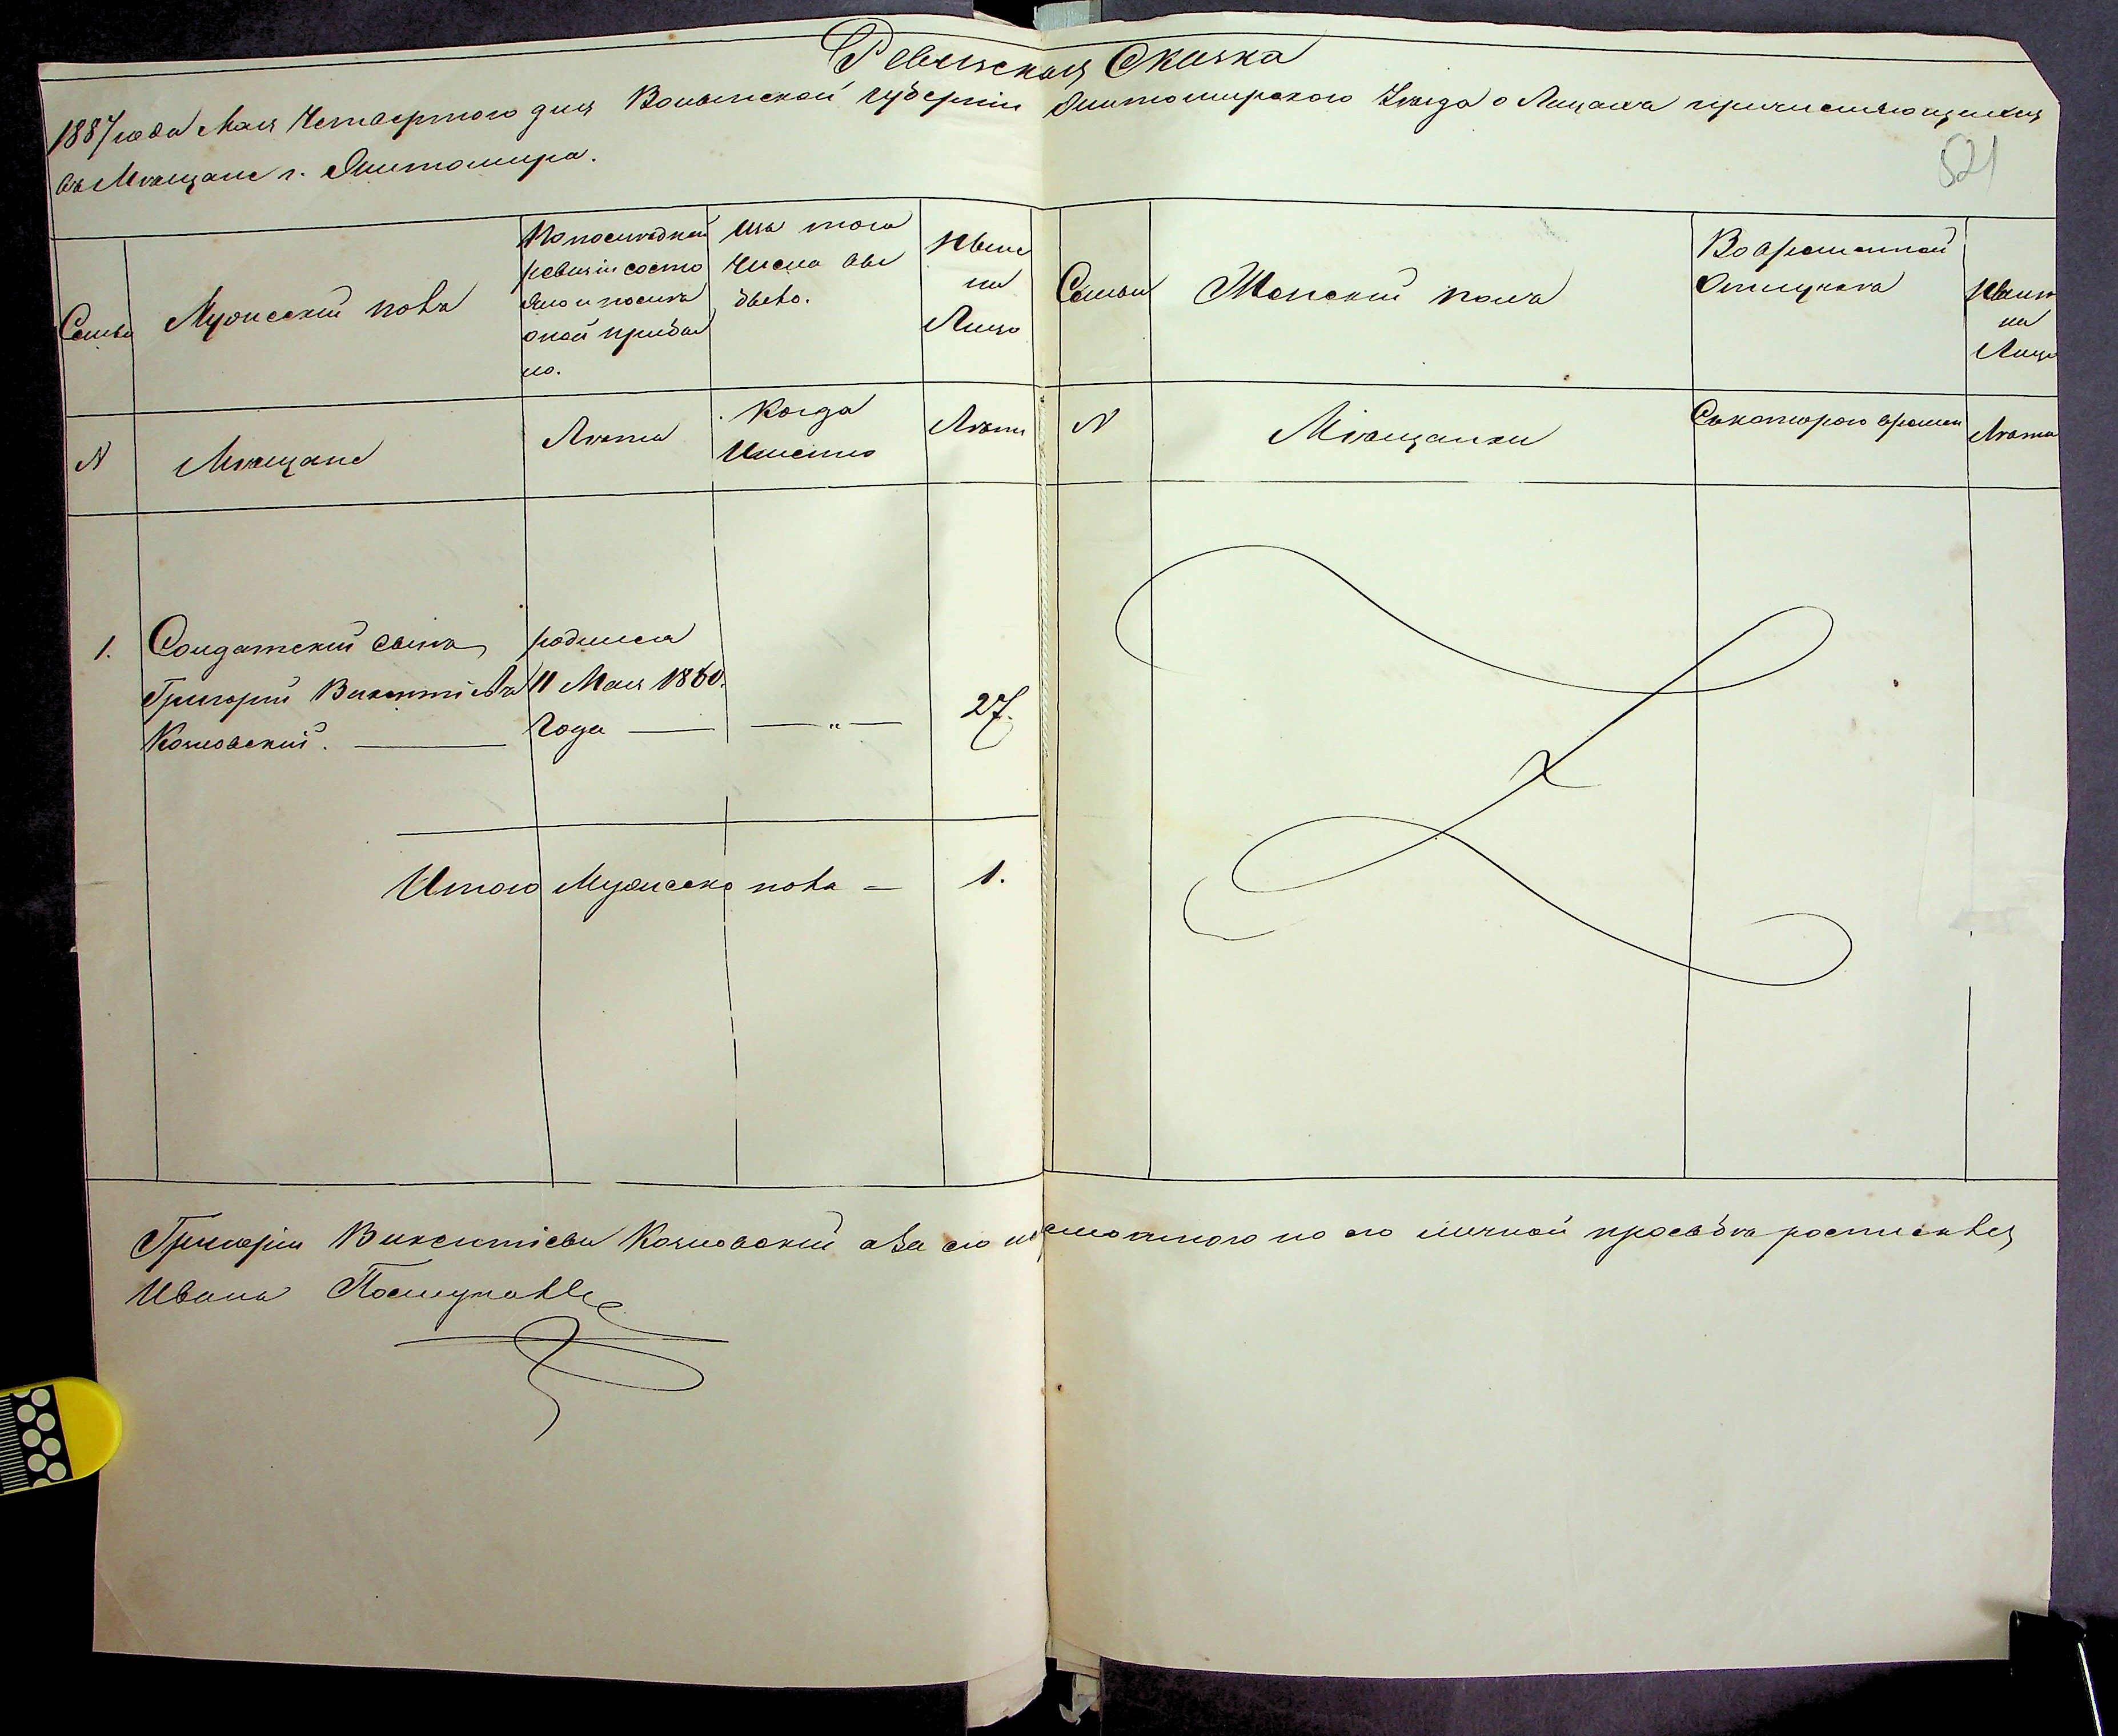 Ревизская Сказка
1887 года Мая Четвертого дня Волынской губерніи Житомирского Уѣзда о Лицахъ причисляющихся
въ Мѣщане г. Житомира.
521
Семьи
Мужескій полъ
По послѣдней
ревизіи состо
яло и послѣ
оной прибы
ло.
Изъ того
числа вы
было.
Нынѣ
на
Лицо
Семьи
Женскій полъ
Во временной
Отлучкѣ
Нынѣ
на
Лицо
N
Мѣщане
Лѣта
Когда
Имѣнно
Лѣта
N
Мѣщанки
Съкоторого времен
Лѣта
1.
Солдатскій сынъ
Григорій Викентіевъ
Козловскій.
родился
11 Мая 1860.
Года
27.
Итого Мужеско пола — 1.
Григорій Викентіевъ Козловскій а За его неграмотного по его личной просьбѣ росписался
Иванъ